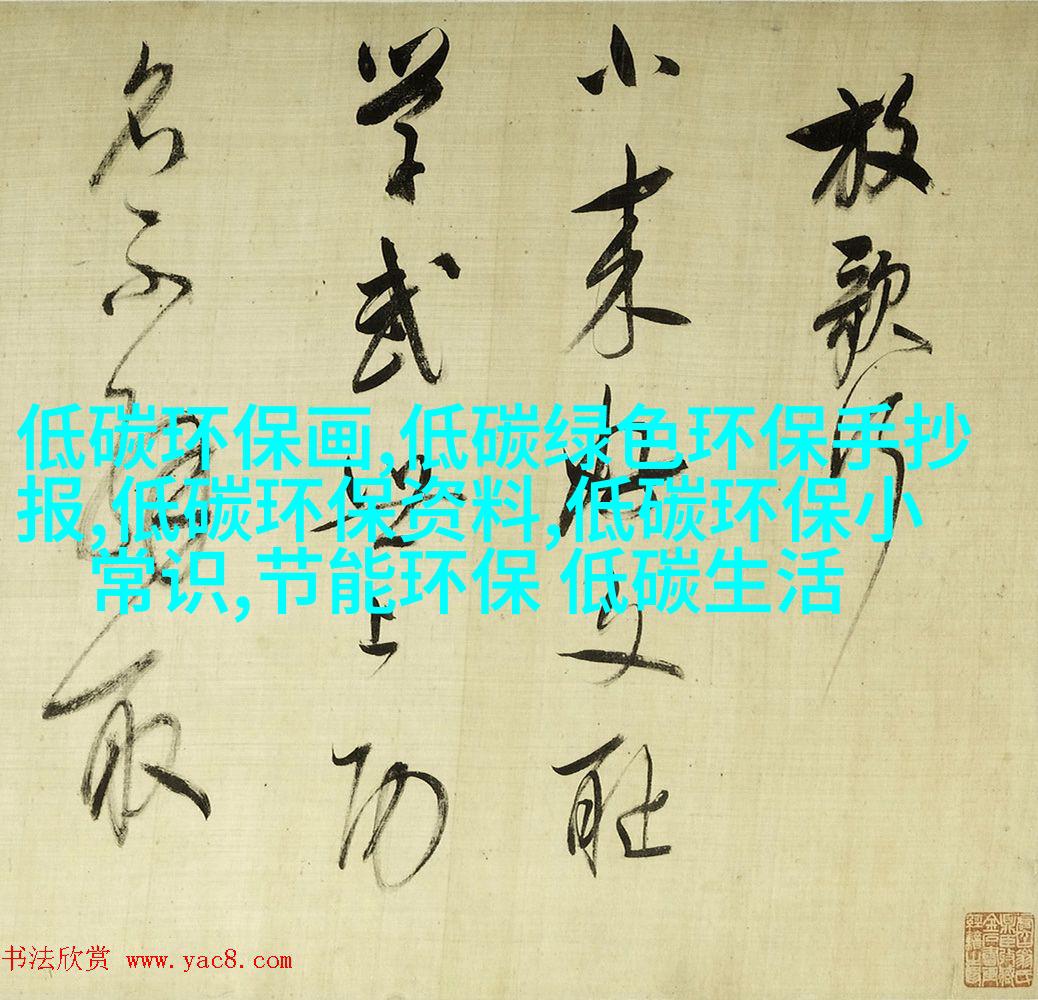 放歌行
小来好文耻
学武世上功
名不解取
低碳环保画,低碳绿色环保手抄
报,低碳环保资料,低碳环保小
常识,节能环保 低碳生活
书法欣赏 www.yac8.com